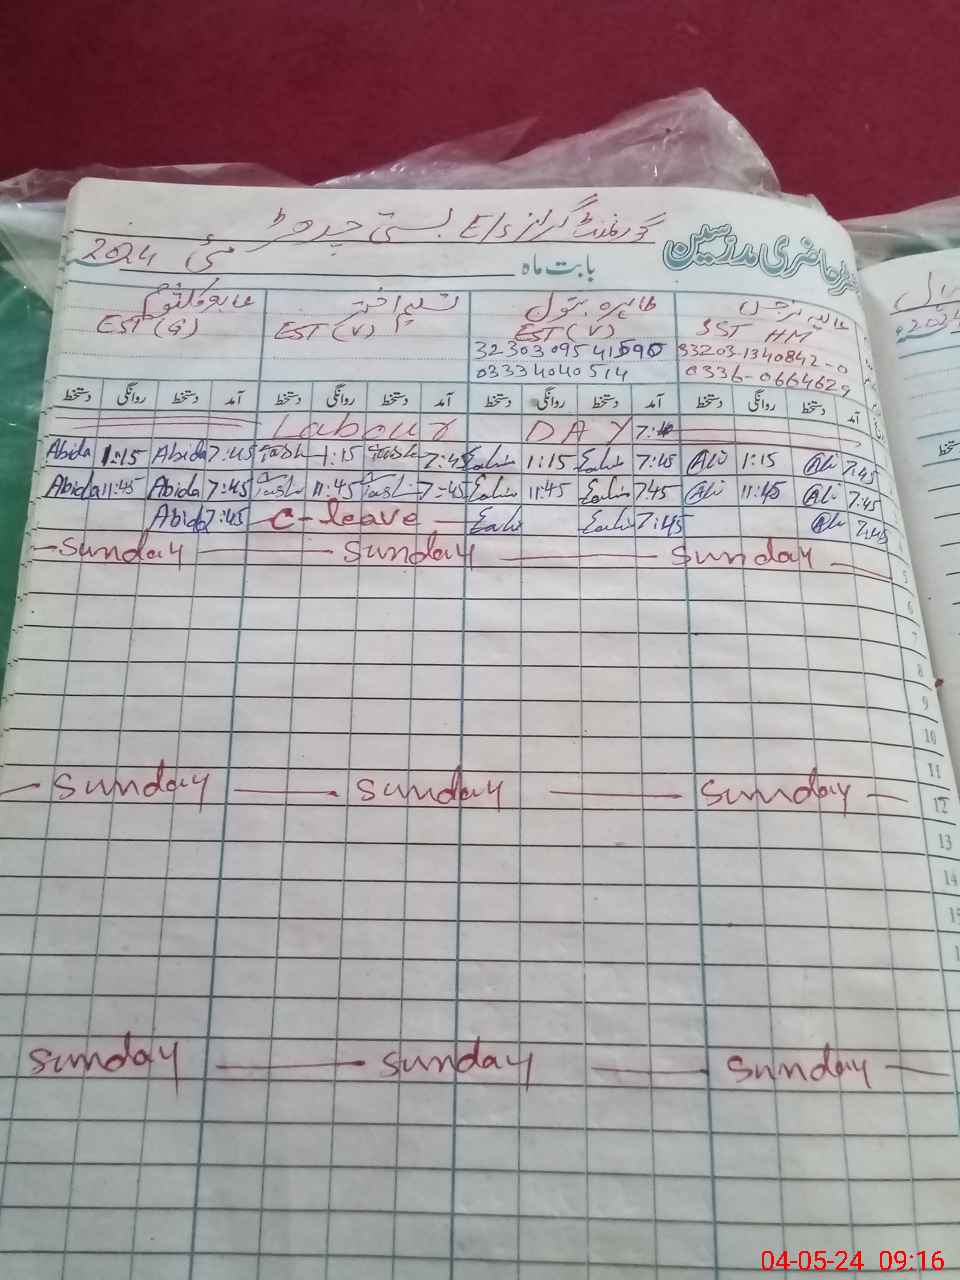 گورنمنٹ گرلز E/s بستی چدھڑ
رجسٹر حاضری مدرسین
بابت ماہ مئی 2024
طاہرہ بتول تسلیم اختر عابدہ کلثوم
SST HM EST (V) EST (V) EST (G)
33203-1340842-0 3230309541590
0336-0664629 03334040514
آمد دستخط روانگی دستخط آمد دستخط روانگی دستخط آمد دستخط روانگی دستخط آمد دستخط روانگی دستخط
Labour DAY 7:4
Abida 1:15 Abida 7:45 Tasli 1:15 Tasli 7:45 1:15 7:45 Ali 1:15 Ali 7:45
Abida 11:45 Abida 7:45 Tasli 11:45 Tasli 7:45 11:45 7:45 Ali 11:45 Ali 7:45
Abida 7:45 C-leave 7:45 Ali 7:45 4
Sunday Sunday Sunday 5
6
7
8
9
10
11
Sunday Sunday Sunday 12
13
14
15
Sunday Sunday Sunday
04-05-24 09:16